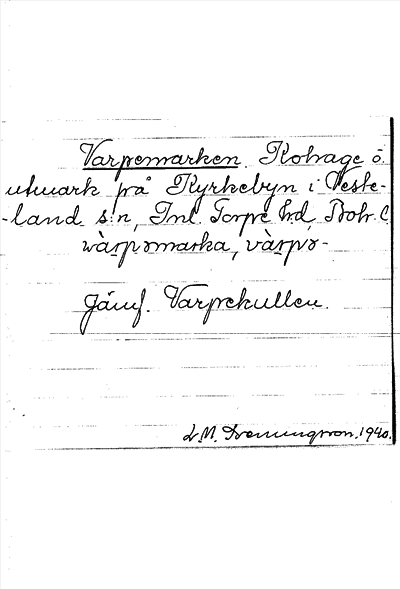 Varpemarken. Kohage o.
utmark på Kyrkebyn i Veste-
-land s:n, Inl. Torpe hd, Boh. l.
wàrpomarka, vàrpo-
Jämf. Varpekullen.
L.M. Svenungsson. 1940.